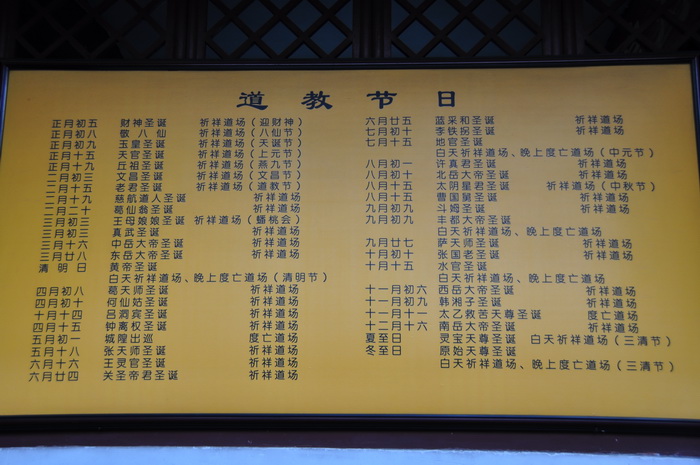 道教节日
正月初五 财神圣诞 祈祥道场（迎财神）
正月初八 敬八仙 祈祥道场（八仙节）
正月初九 玉皇圣诞 祈祥道场（天诞节）
正月十五 天官圣诞 祈祥道场（上元节）
正月十九 丘祖圣诞 祈祥道场（燕九节）
二月初三 文昌圣诞 祈祥道场（文昌节）
二月十五 老君圣诞 祈祥道场（道教节）
二月十九 慈航道人圣诞 祈祥道场
二月二十 葛仙翁圣诞 祈祥道场
三月初三 王母娘娘圣诞 祈祥道场（蟠桃会）
三月初三 真武圣诞 祈祥道场
三月十六 中岳大帝圣诞 祈祥道场
三月廿八 东岳大帝圣诞 祈祥道场
清明日 黄帝圣诞
白天祈祥道场、晚上度亡道场（清明节）
四月初八 葛天师圣诞 祈祥道场
四月初十 何仙姑圣诞 祈祥道场
四月十四 吕洞宾圣诞 祈祥道场
四月十五 钟离权圣诞 祈祥道场
五月初一 城隍出巡 度亡道场
五月十八 张天师圣诞 祈祥道场
六月十六 王灵官圣诞 祈祥道场
六月廿四 关圣帝君圣诞 祈祥道场
六月廿五 蓝采和圣诞 祈祥道场
七月初十 李铁拐圣诞 祈祥道场
七月十五 地官圣诞
白天祈祥道场、晚上度亡道场（中元节）
八月初一 许真君圣诞 祈祥道场
八月初十 北岳大帝圣诞 祈祥道场
八月十五 太阴星君圣诞 祈祥道场（中秋节）
八月十五 曹国舅圣诞 祈祥道场
九月初九 斗姆圣诞 祈祥道场
九月初九 丰都大帝圣诞
白天祈祥道场、晚上度亡道场
九月廿七 萨天师圣诞 祈祥道场
十月初十 张国老圣诞 祈祥道场
十月十五 水官圣诞
白天祈祥道场、晚上度亡道场
十一月初六 西岳大帝圣诞 祈祥道场
十一月初九 韩湘子圣诞 祈祥道场
十一月十一 太乙救苦天尊圣诞 度亡道场
十二月十六 南岳大帝圣诞 祈祥道场
夏至日 灵宝天尊圣诞 白天祈祥道场（三清节）
冬至日 原始天尊圣诞
白天祈祥道场、晚上度亡道场（三清节）